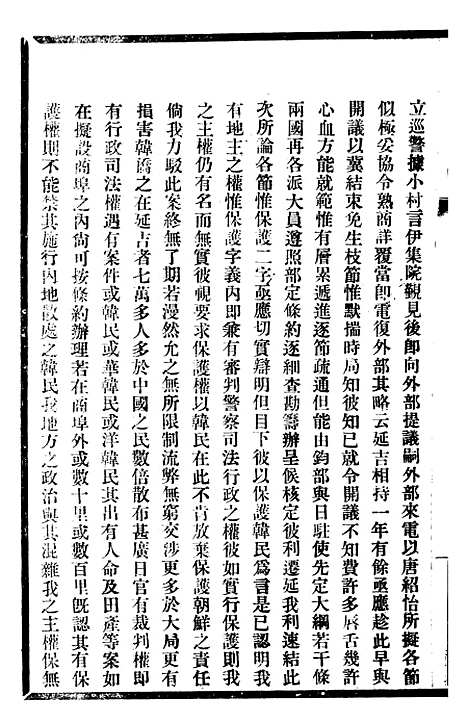 立巡警據小村言伊集院覲見後卽向外部提議嗣外部來電以唐紹怡所擬各節
似極妥協令熟商詳覆當卽電復外部其略云延吉相持一年有餘亟應趁此早與
開議以冀結束免生枝節惟默揣時局知彼知已就令開議不知費許多脣舌幾許
心血方能就範惟有層累遞進逐節疏通但能由鈞部與日駐使先定大綱若干條
兩國再各派大員遵照部定條約逐細查勘籌辦呈候核定彼利遷延我利速結此
次所論各節惟保護二字亟應切實辯明但目下彼以保護韓民爲言是已認明我
有地主之權惟保護字義內卽兼有審判警察司法行政之權彼如實行保護則我
之主權仍有名而無實彼視要求保護權以韓民在此不肯放棄保護朝鮮之責任
倘我力駁此案終無了期若漫然允之無所限制流弊無窮交涉更多於大局更有
損害韓僑之在延吉者七萬多人多於中國之民數倍散布甚廣日官有裁判權卽
有行政司法權遇有案件或韓民或華韓民或洋韓民其出有人命及田產等案如
在擬設商埠之內尙可按條約辦理若在商埠外或數十里或數百里旣認其有保
護權則不能禁其施行內地散處之韓民我地方之政治與其混雜我之主權保無